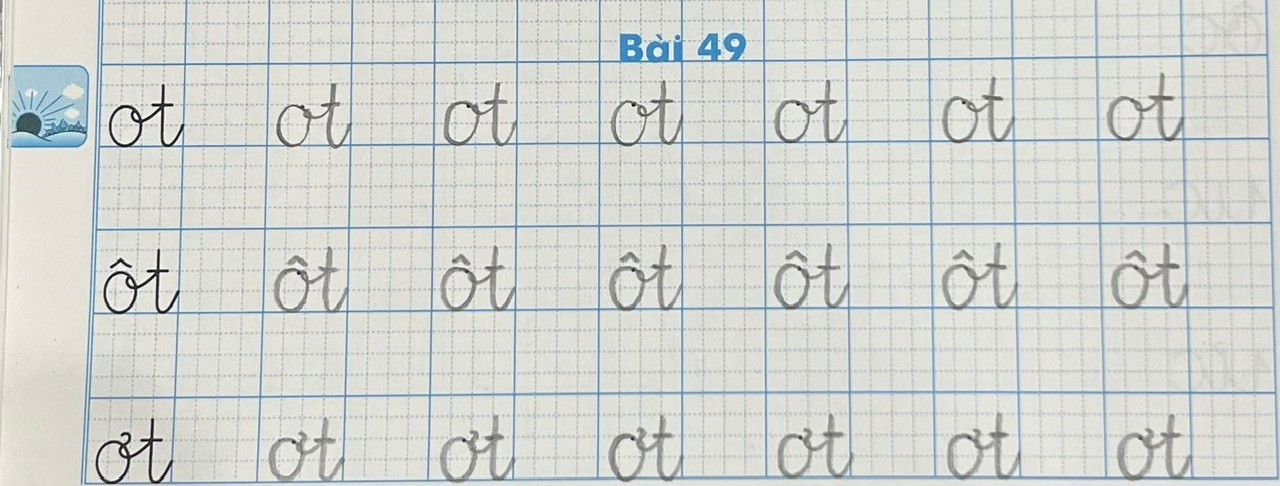 Bài 49
ot ot ot ot ot ot ot
ôt ôt ôt ôt ôt ôt ôt
ơt ơt ơt ơt ơt ơt ơt